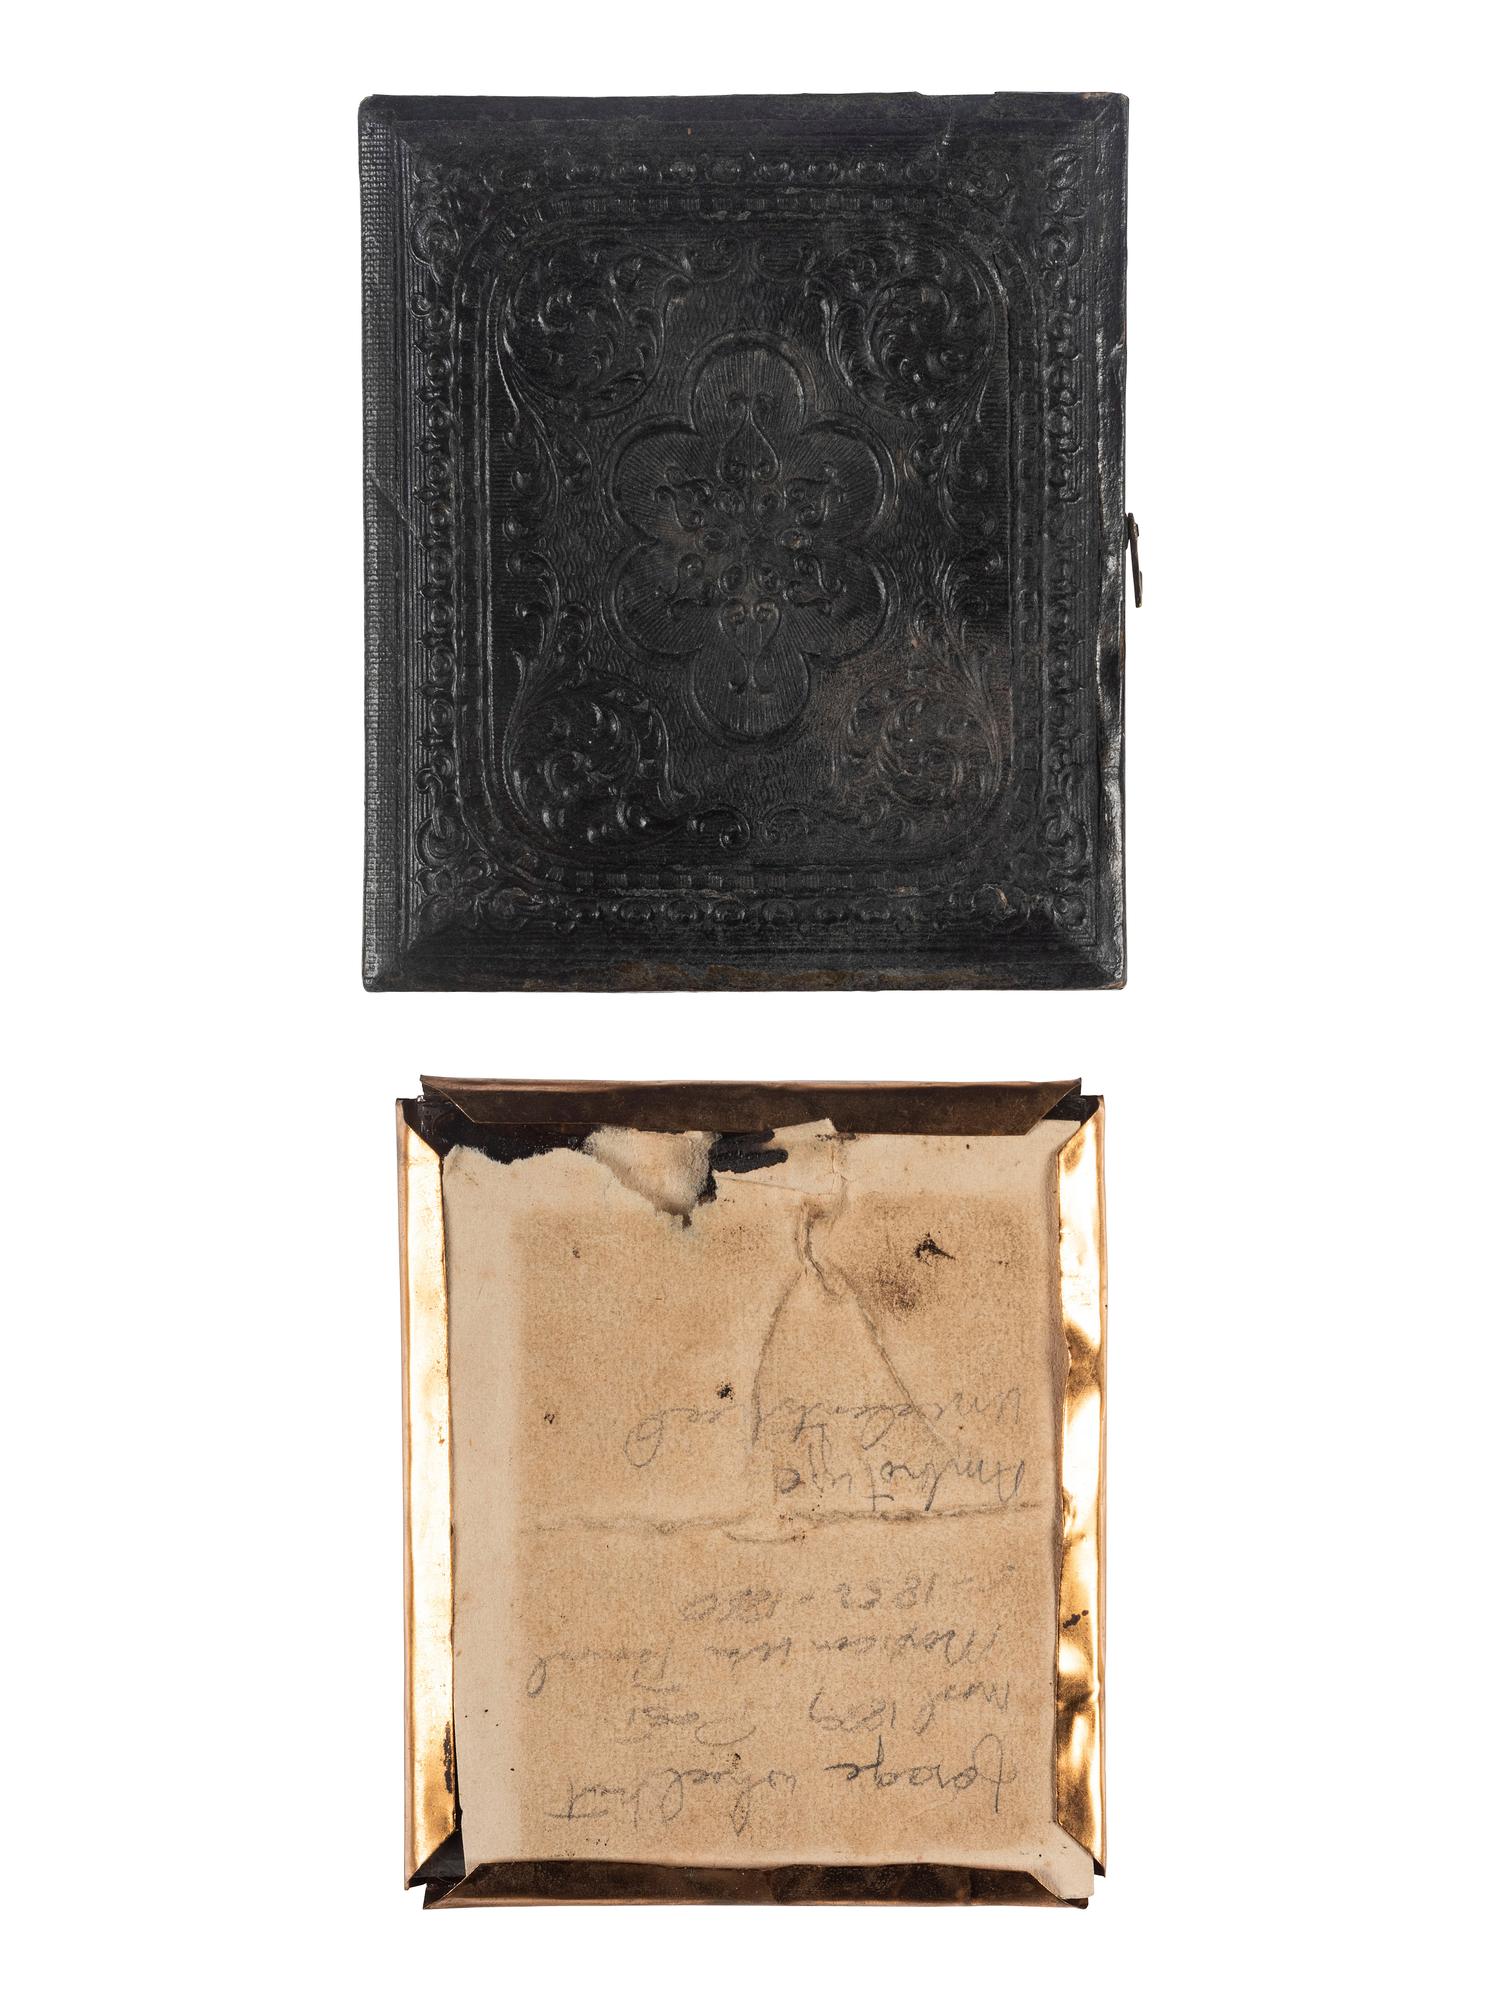 forage wheel hat
Mod 1839 Post
Mexican War Period
c - 1852 - 1860
Ambrotype
Unidentified